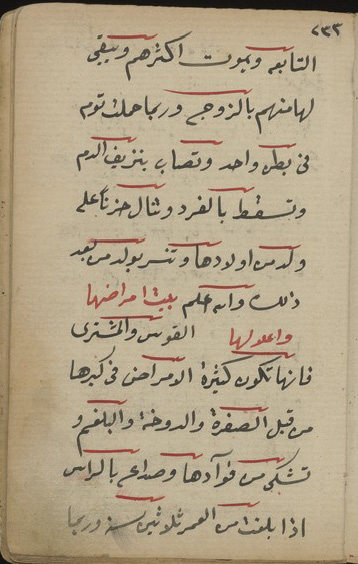 ٢٣٣
التابعه ويموت اكثرهم ويبقى
لها منهم بالزوجي وربما حملت توم
فى بطن واحد وتصاب بنزيف الدم
وتسقط بالفرد وتنال حزنا على
ولد من اولادها وتنسر بولد من بعد
ذلك والله اعلم بيت امراضها
واعلالها القوس والمشترى
فانها تكون كثيرة الامراض فى كبرها
من قبل الصفرة والدوخة والبلغم و
تشكى من فوآدها وصداع بالراس
اذا بلغت من العمر ثلاثين سنه وربما